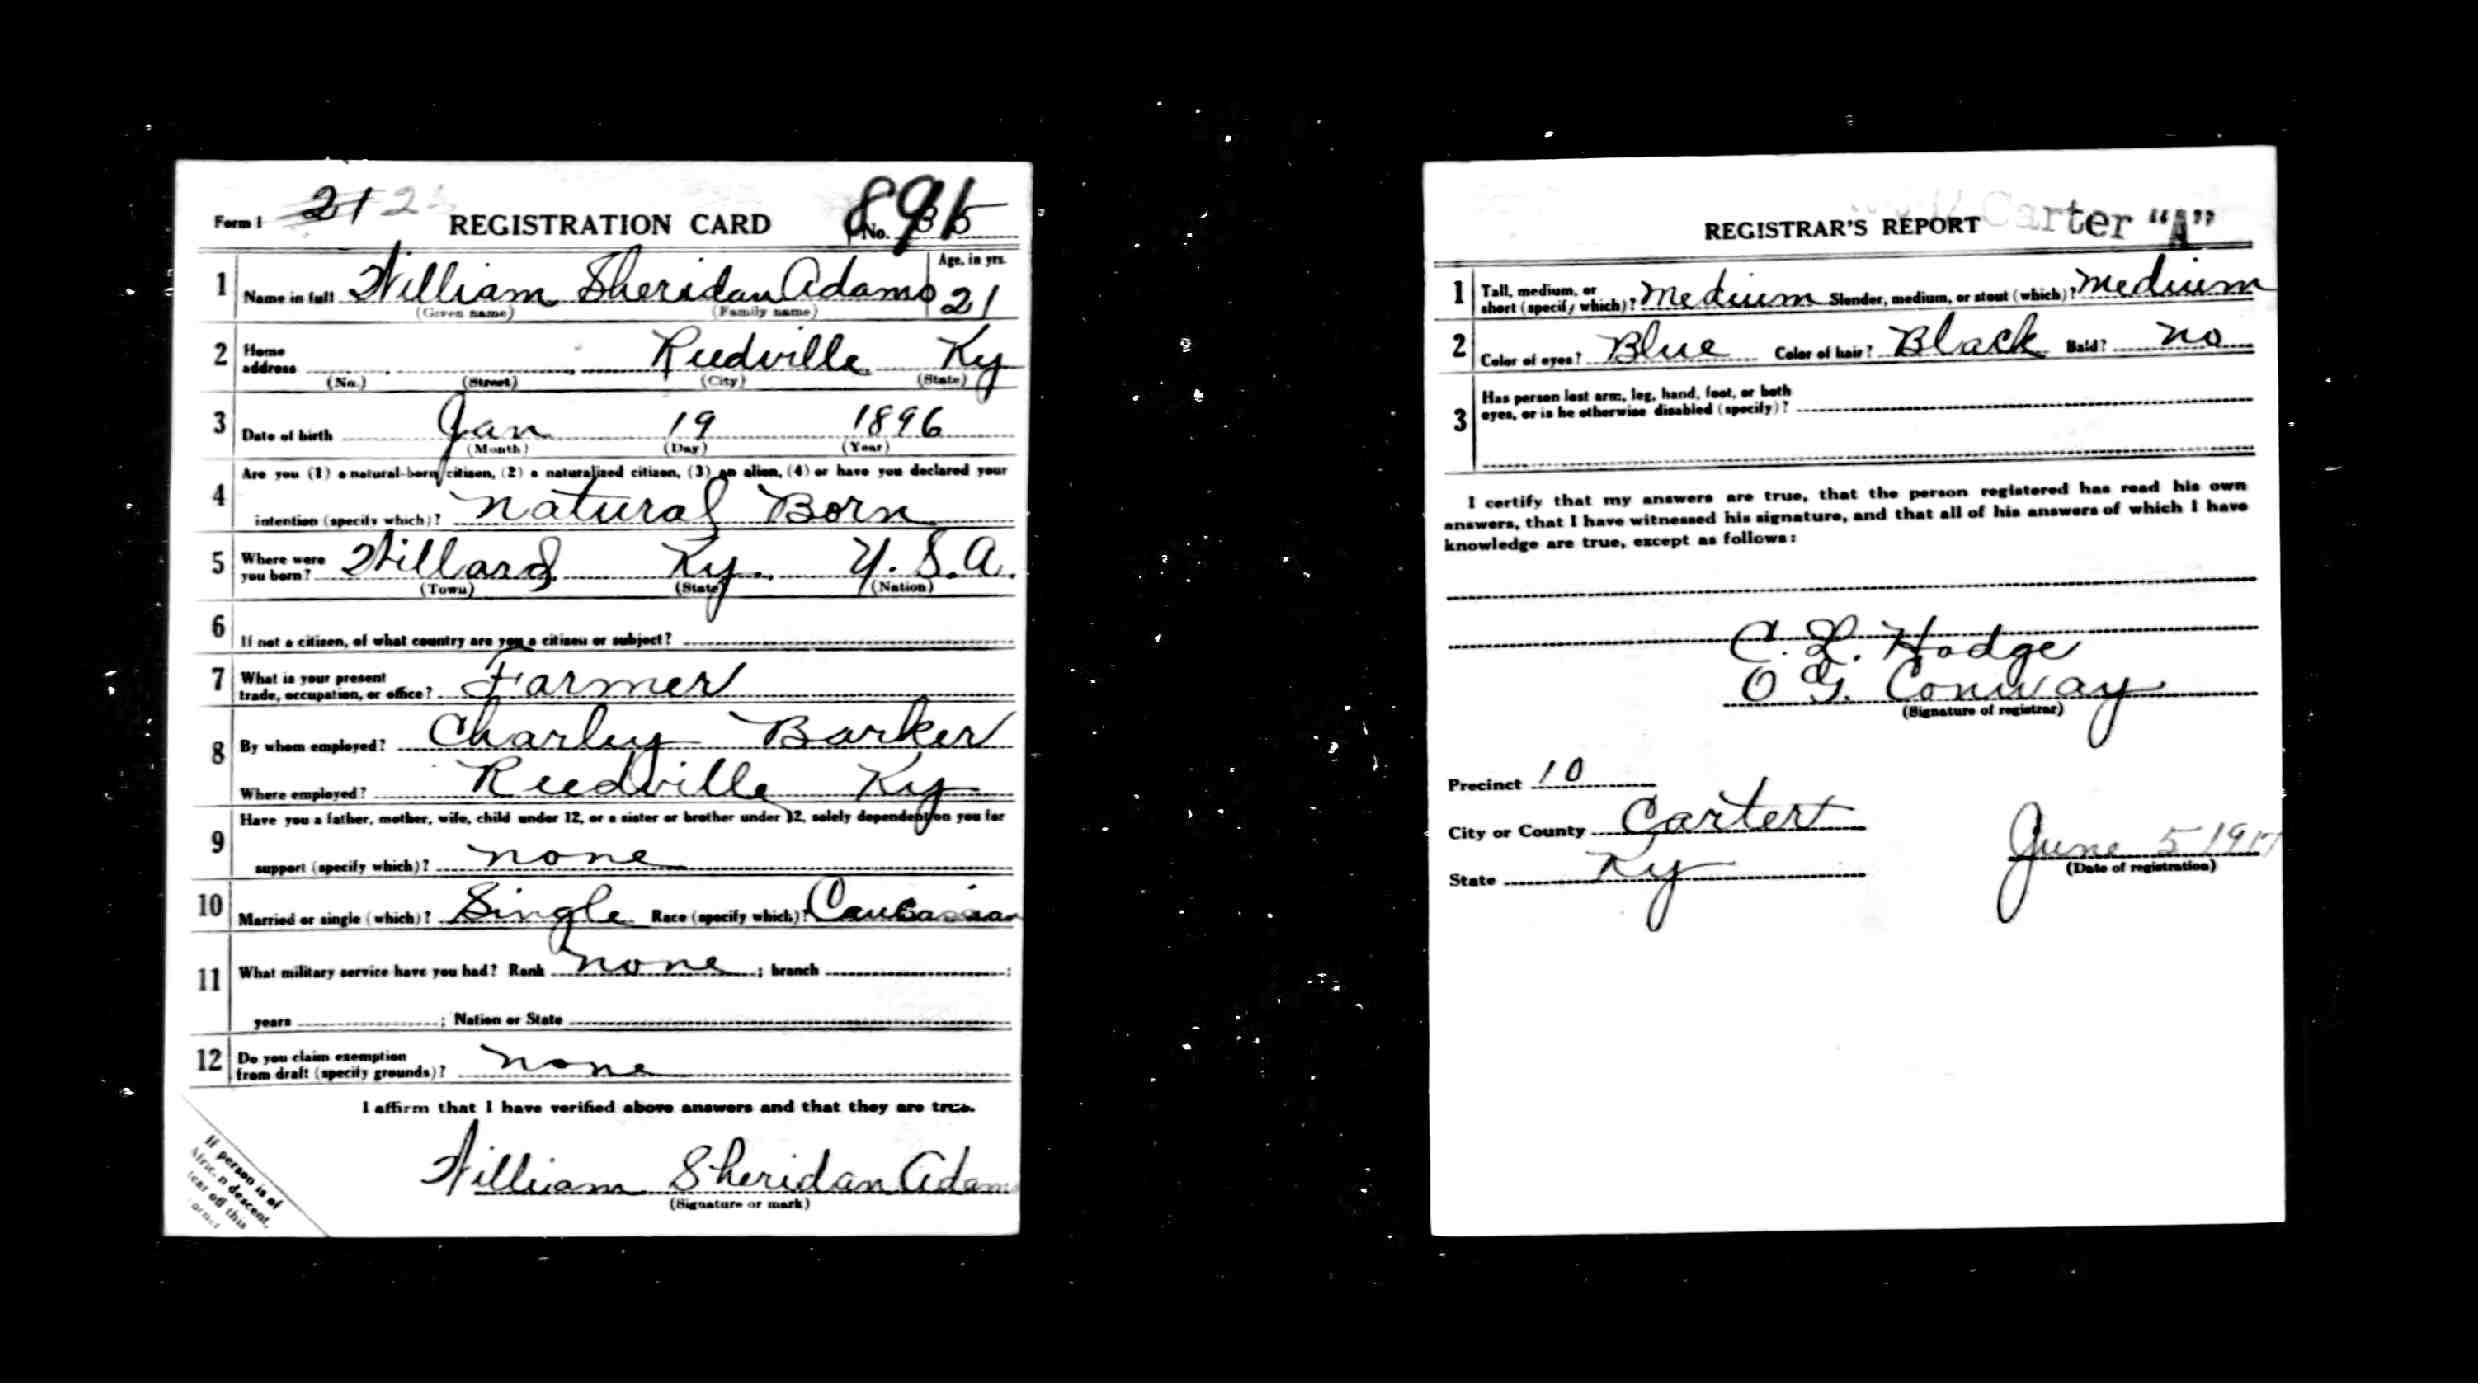 Form 1 21 2 REGISTRATION CARD No. 35 891
1 Name in full William Sheridan Adams Age, in yrs. 21
(Given name) (Family name)
2 Home address Reedville Ky
(No.) (Street) (City) (State)
3 Date of birth Jan 19 1896
(Month) (Day) (Year)
Are you (1) a natural-born citizen, (2) a naturalized citizen, (3) an alien, (4) or have you declared your
4 intention (specify which)? Natural Born
5 Where were you born? Willard Ky. U.S.A.
(Town) (State) (Nation)
6 If not a citizen, of what country are you a citizen or subject?
7 What is your present trade, occupation, or office? Farmer
8 By whom employed? Charley Barker
Where employed? Reedville Ky
Have you a father, mother, wife, child under 12, or a sister or brother under 12, solely dependent on you for
9 support (specify which)? none
10 Married or single (which)? Single Race (specify which)? Caucasian
11 What military service have you had? Rank none ; branch ;
years ; Nation or State
12 Do you claim exemption from draft (specify grounds)? none
I affirm that I have verified above answers and that they are true.
William Sheridan Adams
(Signature or mark)
If person is of
African descent,
tear off this
corner
REGISTRAR'S REPORT Carter "A"
1 Tall, medium, or short (specify which)? Medium Slender, medium, or stout (which)? Medium
2 Color of eyes? Blue Color of hair? Black Bald? no
3 Has person lost arm, leg, hand, foot, or both
eyes, or is he otherwise disabled (specify)?
I certify that my answers are true, that the person registered has read his own
answers, that I have witnessed his signature, and that all of his answers of which I have
knowledge are true, except as follows:
C. L. Hodge
O G. Conway
(Signature of registrar)
Precinct 10
City or County Carter
State Ky June 5 1917
(Date of registration)